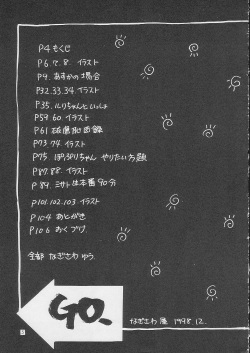 P4.もくじ
P6.7.8. イラスト
P9. あすかの場合
P32.33.34. イラスト
P35. ルリちゃんといっしょ
P59.60. イラスト
P61
P73.74 イラスト
P75 ぽぷりちゃん やりたい方題
P87.88. イラスト
P89. ミサトは本番90分
P101.102.103 イラスト
P104 あとがき
P106 おくづけ
全部 なぎさわ ゆう.
GO.
なぎさわ 1998.12.